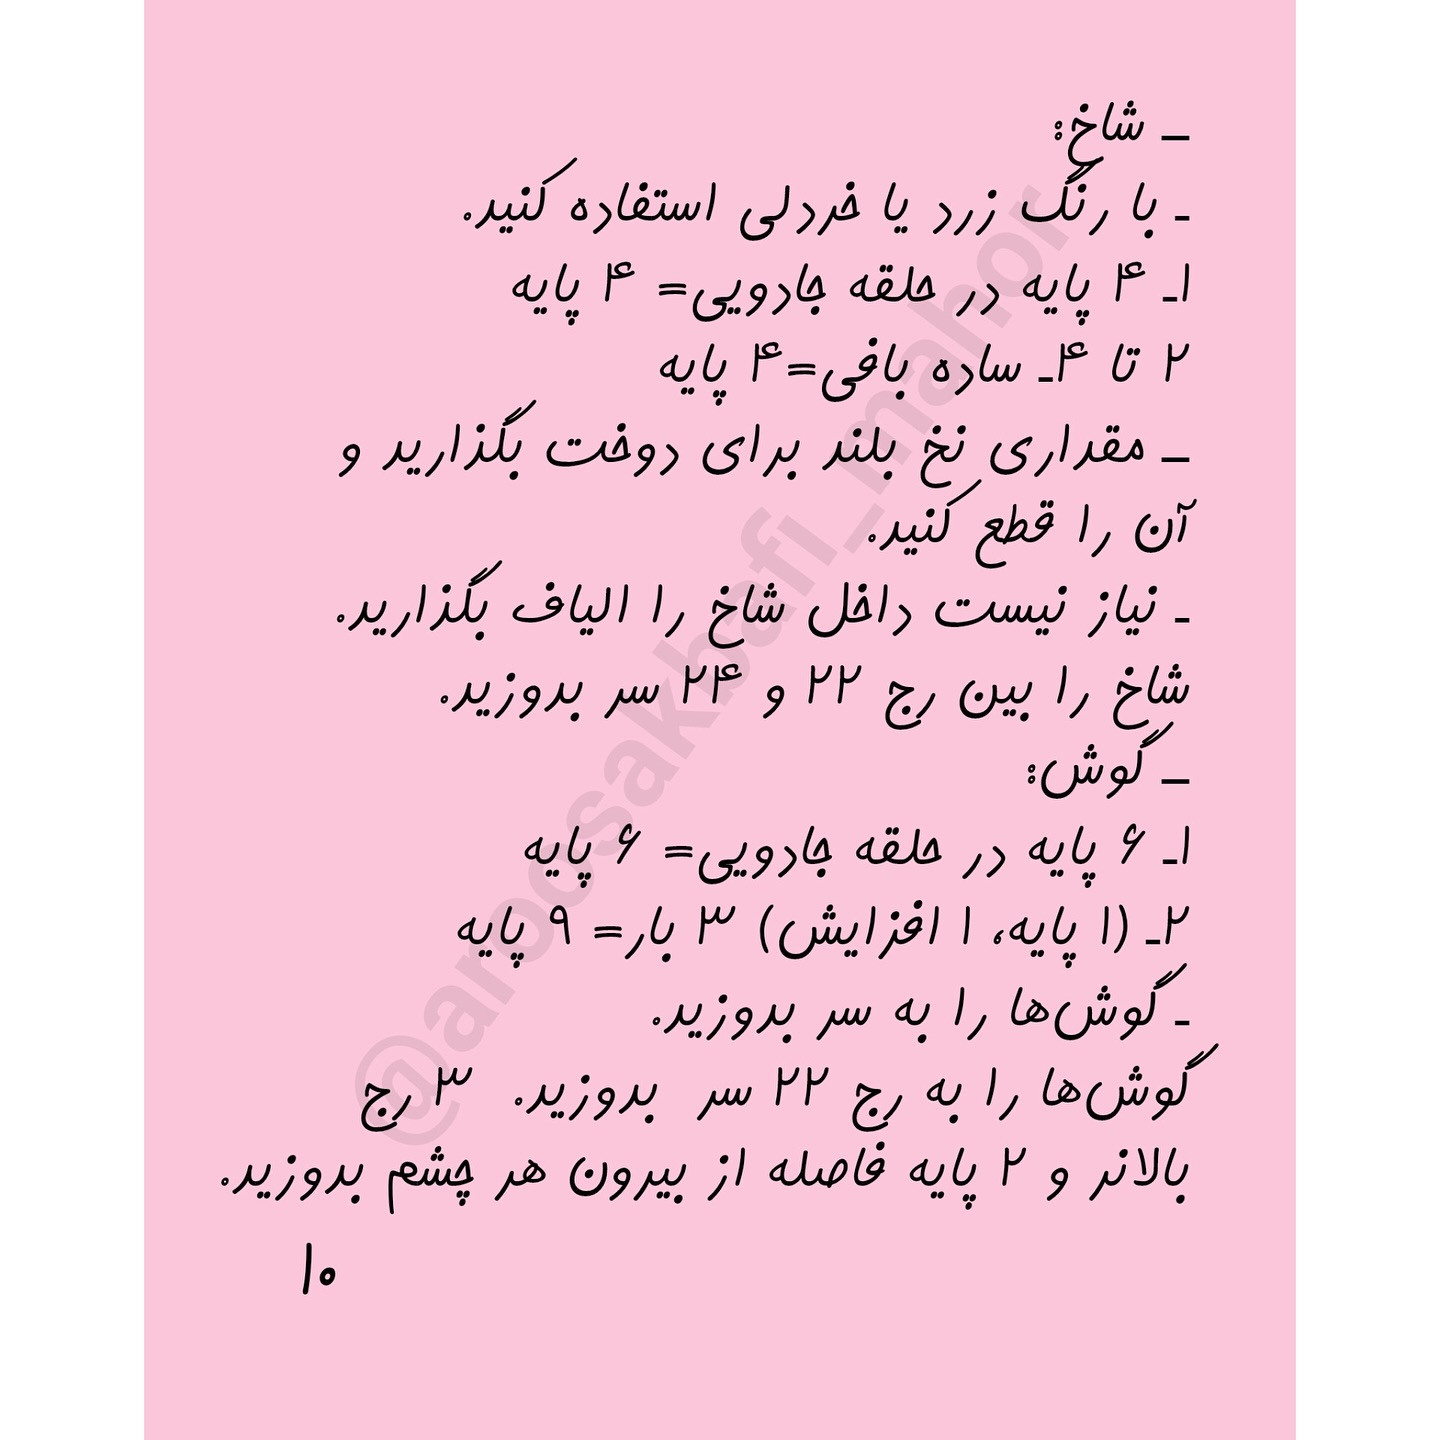 ـ شاخ:
ـ با رنگ زرد یا خردلی استفاده کنید.
۱ـ ۴ پایه در حلقه جادویی= ۴ پایه
۲ تا ۴ـ ساده بافی=۴ پایه
ـ مقداری نخ بلند برای دوخت بگذارید و
آن را قطع کنید.
ـ نیاز نیست داخل شاخ را الیاف بگذارید.
شاخ را بین رج ۲۲ و ۲۴ سر بدوزید.
ـ گوش:
۱ـ ۶ پایه در حلقه جادویی= ۶ پایه
۲ـ (۱ پایه، ۱ افزایش) ۳ بار= ۹ پایه
ـ گوش‌ها را به سر بدوزید.
گوش‌ها را به رج ۲۲ سر بدوزید. ۳ رج
بالانر و ۲ پایه فاصله از بیرون هر چشم بدوزید.
۱۰
@aroosakbafi_mahor